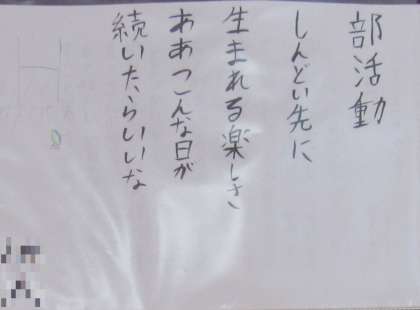 部活動
しんどい先に
生まれる楽しさ
ああこんな日が
続いたらいいな